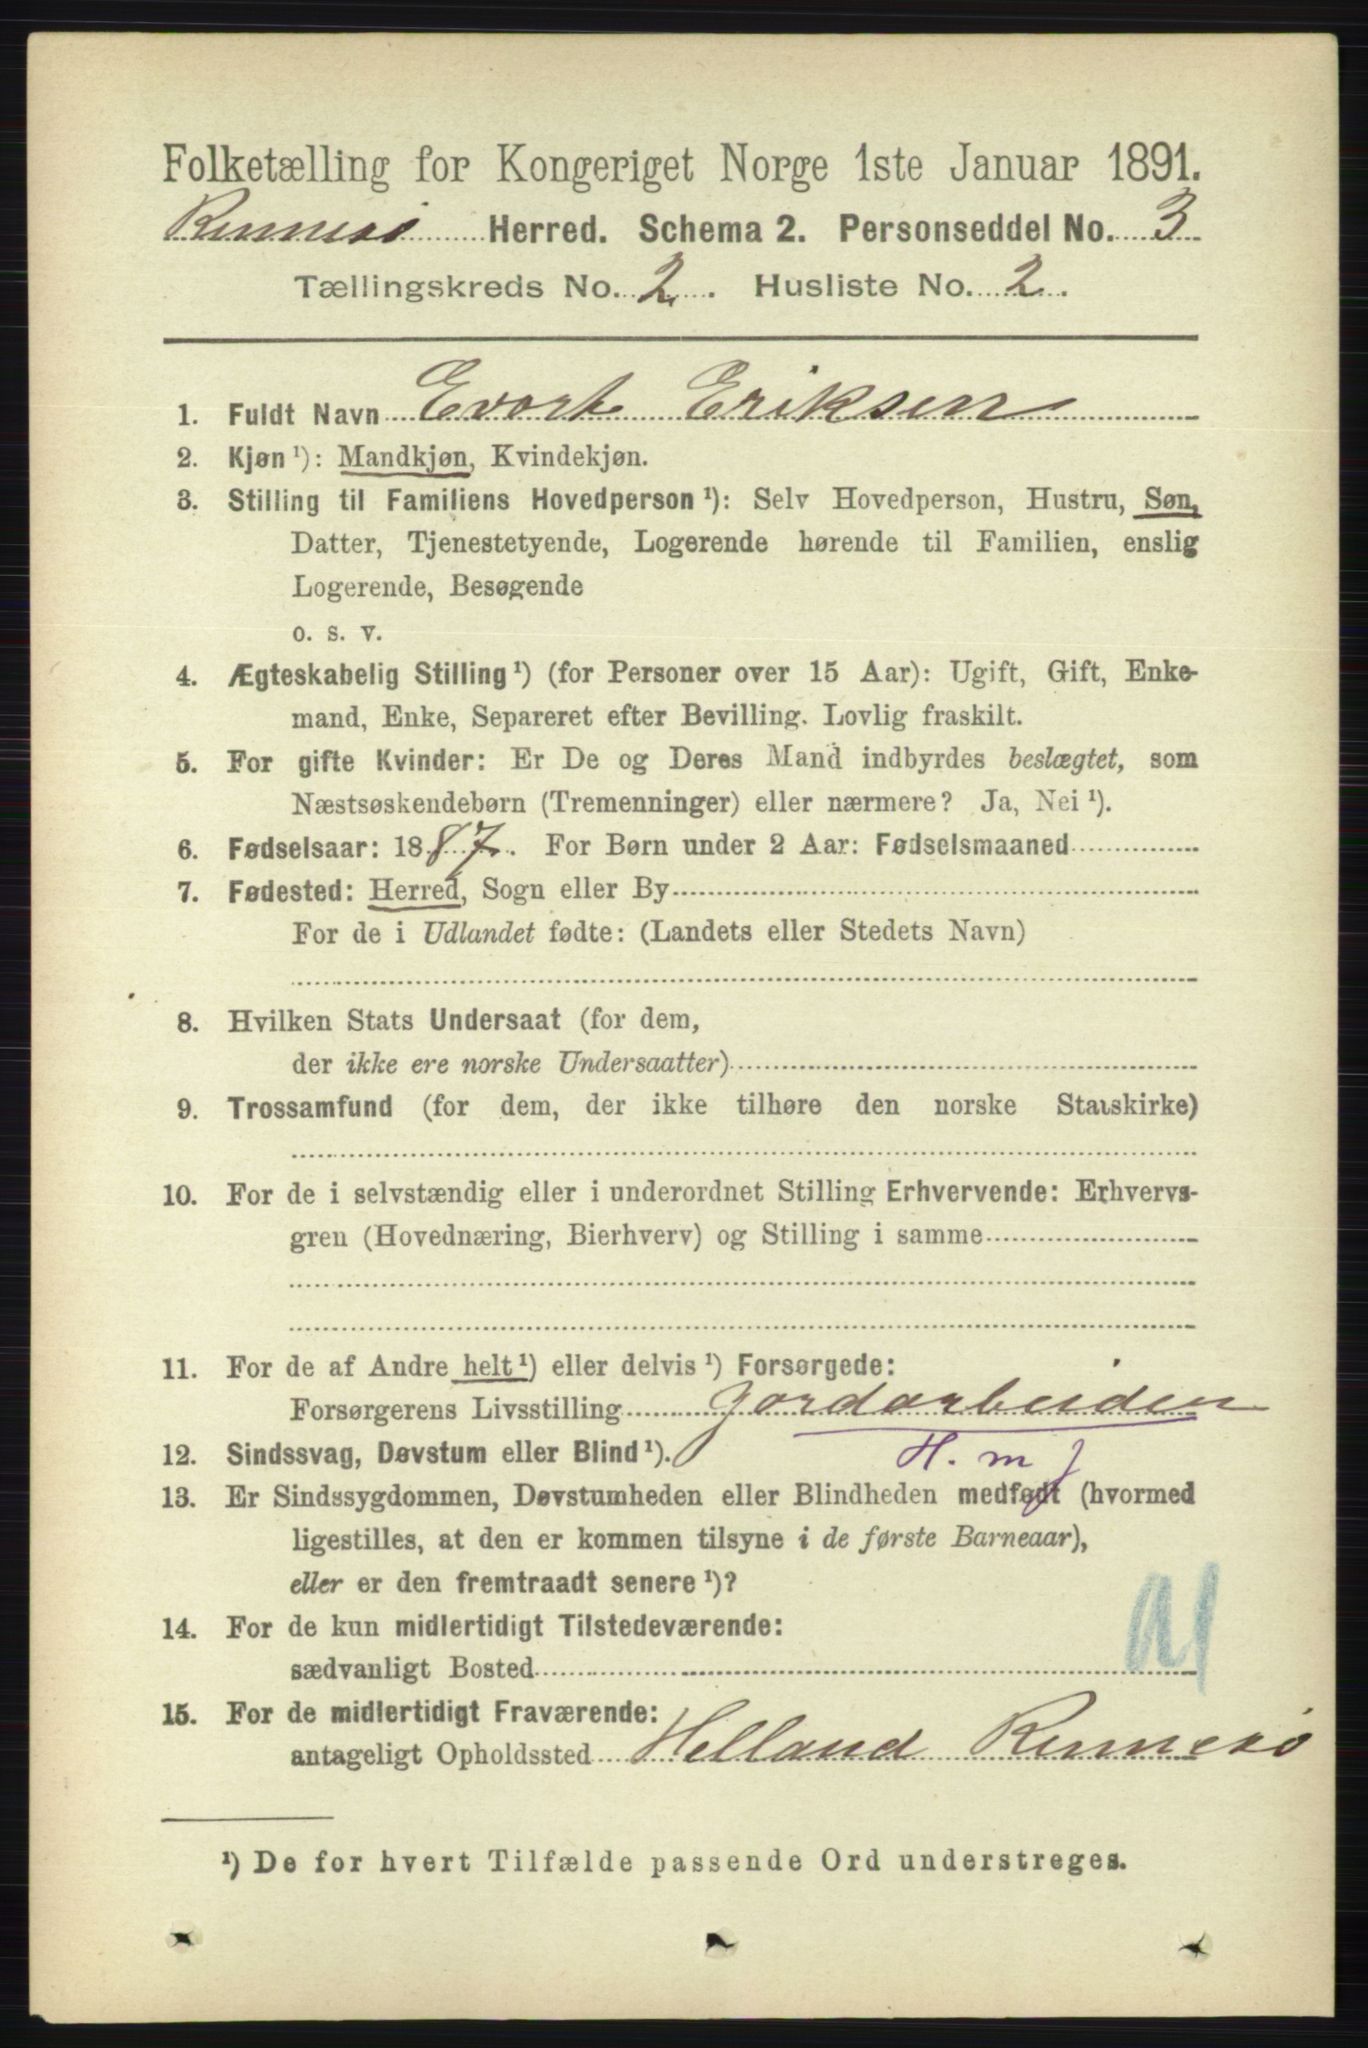 Folketælling for Kongeriget Norge 1ste Januar 1891.
Rennesø Herred. Schema 2. Personseddel No. 3
Tællingskreds No. 2. Husliste No. 2.
1. Fuldt Navn Evort Eriksen
2. Kjøn ¹): Mandkjøn, Kvindekjøn.
3. Stilling til Familiens Hovedperson ¹): Selv Hovedperson, Hustru, Søn,
Datter, Tjenestetyende, Logerende hørende til Familien, enslig
Logerende, Besøgende
o. s. v.
4. Ægteskabelig Stilling ¹) (for Personer over 15 Aar): Ugift, Gift, Enke-
mand, Enke, Separeret efter Bevilling. Lovlig fraskilt.
5. For gifte Kvinder: Er De og Deres Mand indbyrdes beslægtet, som
Næstsøskendebørn (Tremenninger) eller nærmere? Ja, Nei ¹).
6. Fødselsaar: 1887. For Børn under 2 Aar: Fødselsmaaned
7. Fødested: Herred, Sogn eller By
For de i Udlandet fødte: (Landets eller Stedets Navn)
8. Hvilken Stats Undersaat (for dem,
der ikke ere norske Undersaatter)
9. Trossamfund (for dem, der ikke tilhøre den norske Statskirke)
10. For de i selvstændig eller i underordnet Stilling Erhvervende: Erhvervs-
gren (Hovednæring, Bierhverv) og Stilling i samme
11. For de af Andre helt ¹) eller delvis ¹) Forsørgede:
Forsørgerens Livsstilling Jordarbeider
12. Sindssvag, Døvstum eller Blind ¹). H. m J
13. Er Sindssygdommen, Døvstumheden eller Blindheden medfødt (hvormed
ligestilles, at den er kommen tilsyne i de første Barneaar),
eller er den fremtraadt senere ¹)?
14. For de kun midlertidigt Tilstedeværende:
sædvanligt Bosted
15. For de midlertidigt Fraværende:
antageligt Opholdssted Helland Rennesø
¹) De for hvert Tilfælde passende Ord understreges.